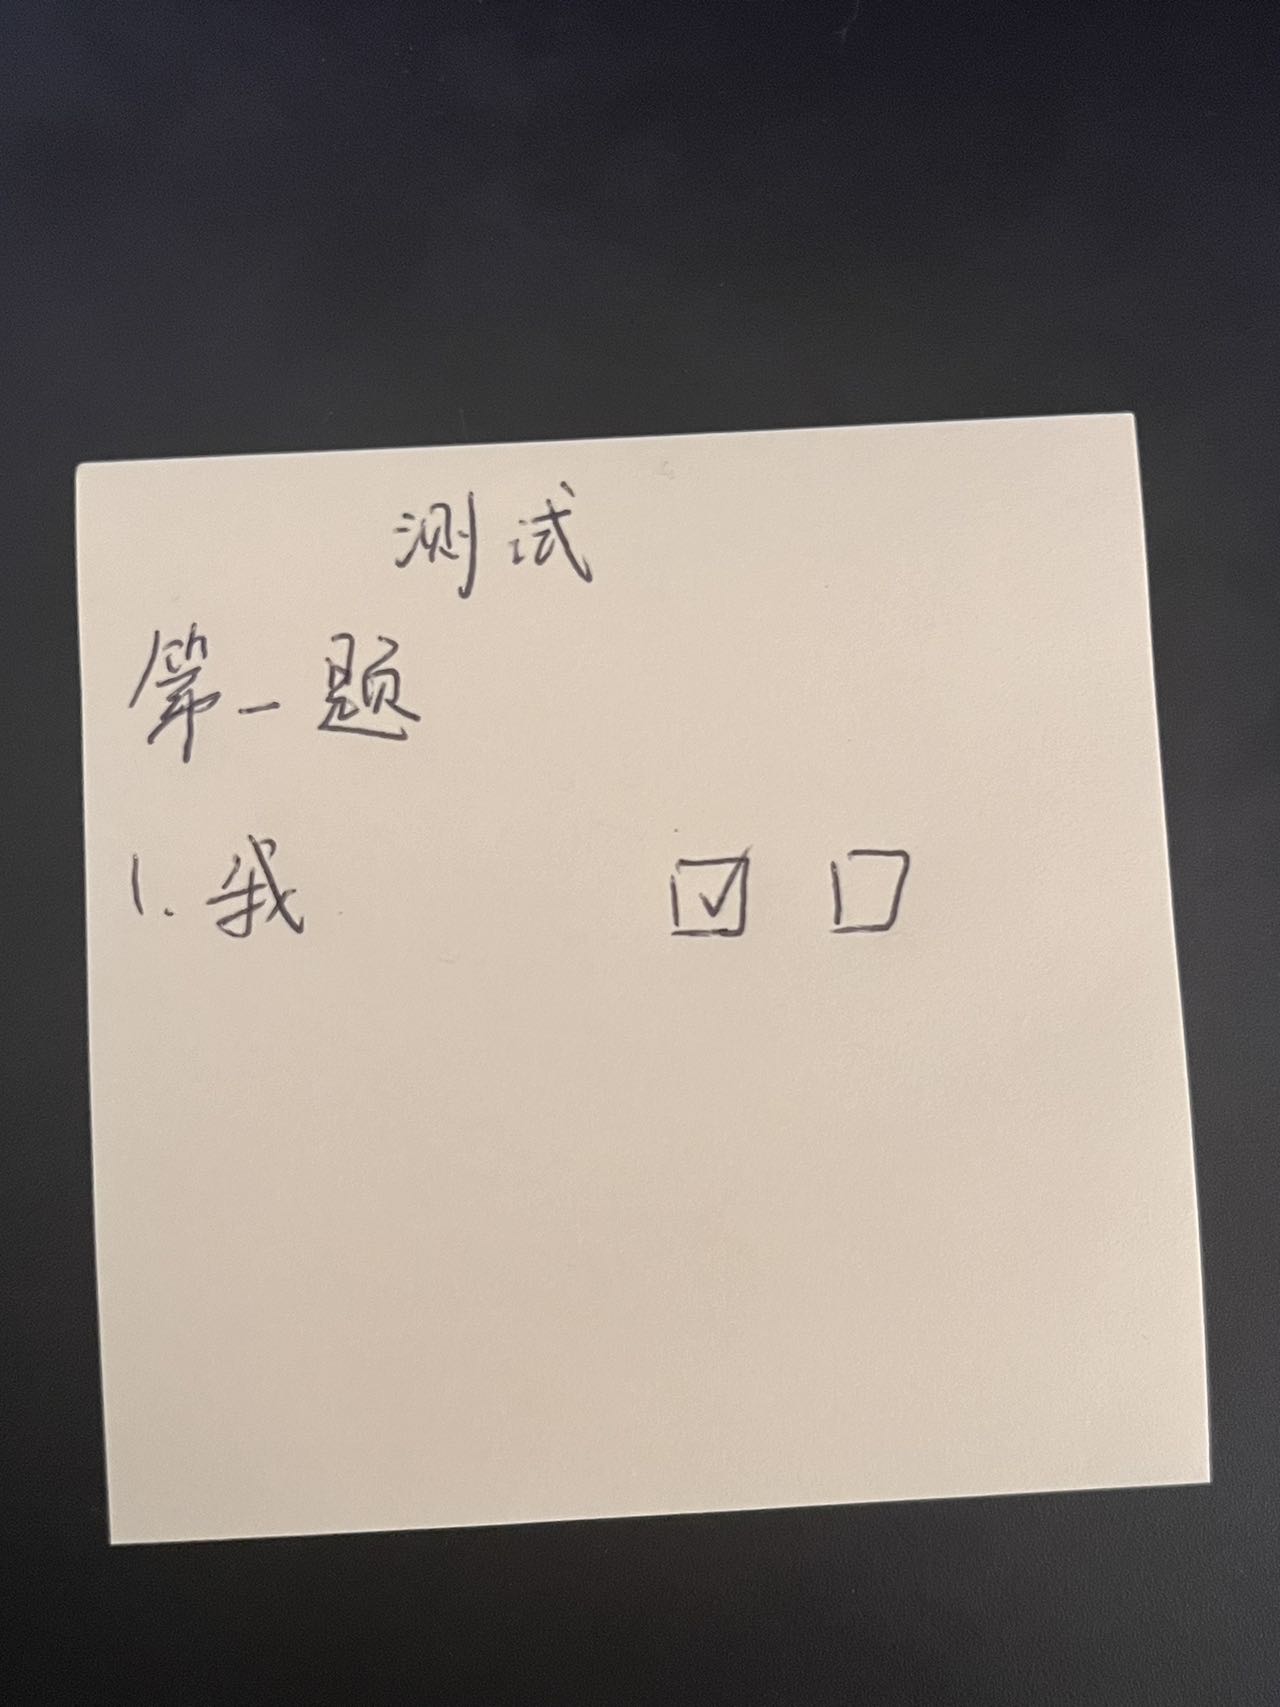 测试
第一题
1. 我 ☑ □